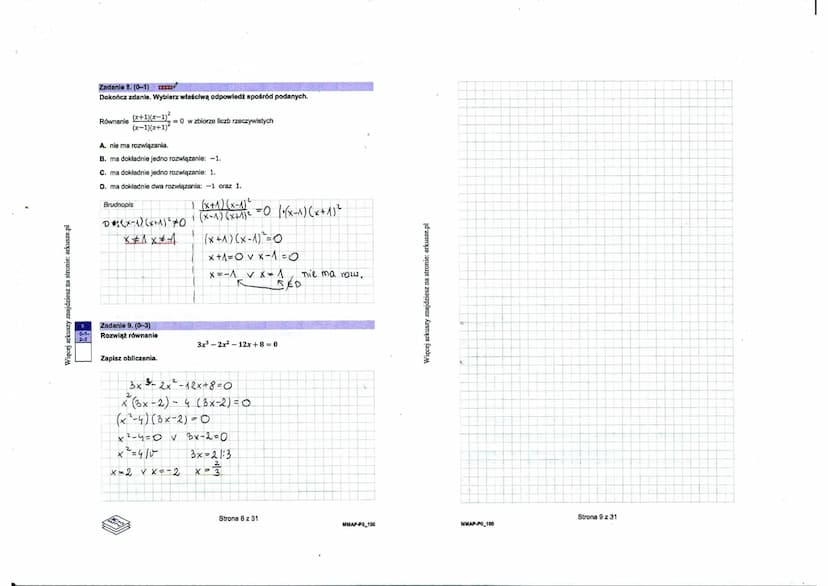 Zadanie 8. (0–1)
Dokończ zdanie. Wybierz właściwą odpowiedź spośród podanych.
Równanie (x+1)(x−1)² / (x−1)(x+1)² = 0 w zbiorze liczb rzeczywistych
A. nie ma rozwiązania.
B. ma dokładnie jedno rozwiązanie: −1.
C. ma dokładnie jedno rozwiązanie: 1.
D. ma dokładnie dwa rozwiązania: −1 oraz 1.
Brudnopis
(x−1)(x+1)² ≠0
x≠1 x≠−1
(x+1)(x−1)² / (x−1)(x+1)² =0 |·(x−1)(x+1)²
(x+1)(x−1)²=0
x+1=0 v x−1=0
x=−1 v x=1 nie ma
Zadanie 9. (0–3)
Rozwiąż równanie
3x³ − 2x² − 12x + 8 = 0
Zapisz obliczenia.
3x³−2x²−12x+8=0
x²(3x−2)−4(3x−2)=0
(x²−4)(3x−2)=0
x²−4=0 v 3x−2=0
x²=4/√ 3x=2|:3
x=2 v x=−2 x=2/3
Strona 8 z 31
MMAP-P0_100
Więcej arkuszy znajdziesz na stronie: arkusze.pl
Więcej arkuszy znajdziesz na stronie: arkusze.pl
MMAP-P0_100
Strona 9 z 31